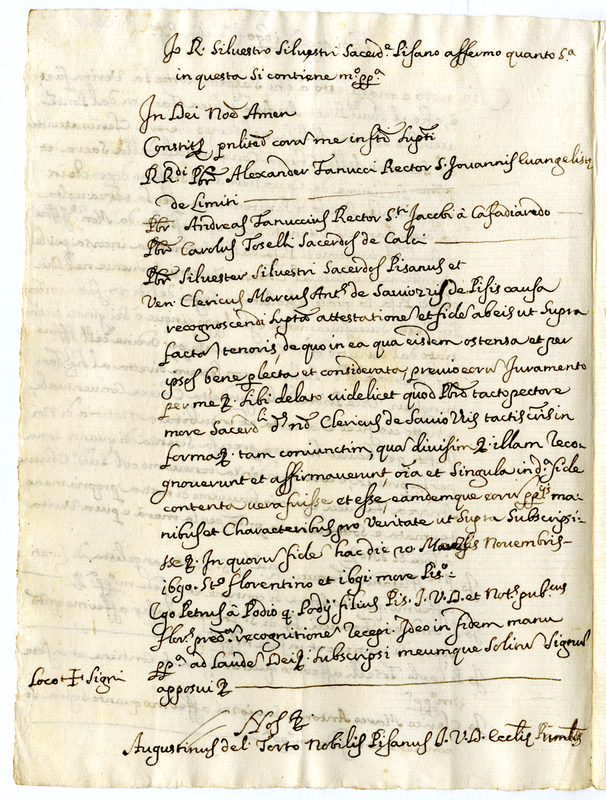 Io R. Silvestro Silvestri Sacerde. Pisano affermo quanto sa.
in questa si contiene mo. ppa.
In Dei Noe Amen
Constit. pnlited cora me infto supti
RRdi Pbr Alexander Fanucci Rector S. Jovannis Evangeliste
de Limiri
Pbr Andreas Fanuccius Rector Sti Jacobi à Casadiaredo
Pbr Carolus Toselli Sacerdos de Calci
Pbr Silvester Silvestri Sacerdos Pisanus et
Ven. Clericus Marcus Ants. de Saviozzis de Pisis causa
recognoscendi supta attestatione et fide ab eis ut supra
facta tenoris de quo in ea qua eisdem ostensa et per
ipsos bene plecta et considerata, previo eoru Juramento
per me sibi delato videlicet quod Pbri tacto pectore
more Sacerdli ds. nd Clericus de Saviozzis tactis in
forma tam coniunctim, qua divisim illam reco-
gnoverunt et affirmaverunt, oia et singula in da. fide
contenta vera fuisse et esse, eamdemque eoru ppiis ma-
nibus et Characteribus pro Veritate ut supra subscripsi-
sse. In quoru fide hac die 20 Novembris
1690. Sto. Florentino et 1691. more Piso.
Ego Petrus à Podio q. Podij filius Pis. J. V. D. et Nots. pubcus
Flors. pred. recognitione recepi. Ideo in fidem manu
ppa. ad Laude Dei subscripsi meumque solitu Signu
apposui
Loco + Signi
Nos
Augustinus del Torto Nobilis Pisanus J. V. D.